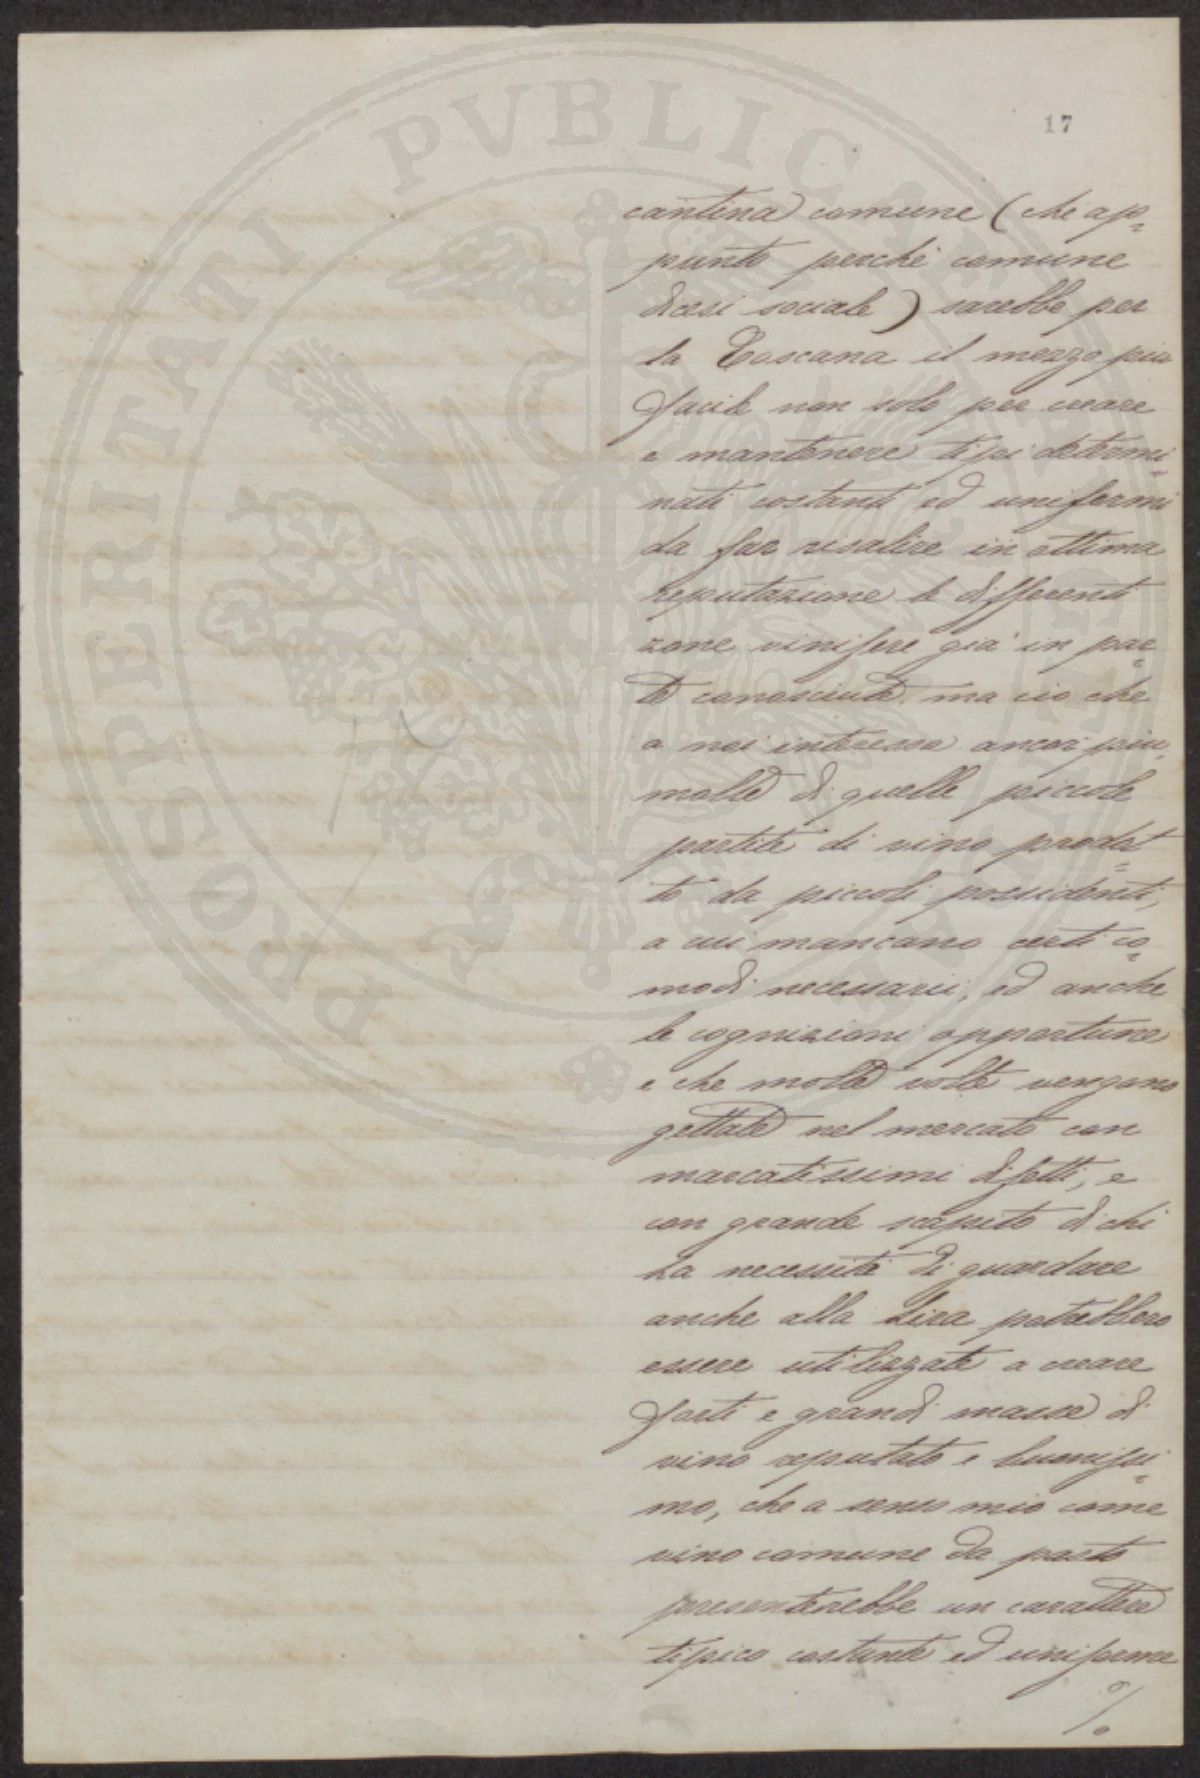 PROSPERITATI PUBLICAE AUGENDAE
17
cantina comune (che ap=
punto perchè comune
dicesi sociale) sarebbe per
la Toscana il mezzo più
facile non solo per creare
e mantenere tipi determi=
nati costanti ed uniformi
da far risalire in ottima
reputazione le differenti
zone vinifere già in par=
te conosciute. ma ciò che
a noi interessa ancor più,
molte di quelle piccole
partite di vino prodot=
to da piccoli possidenti,
a cui mancano certi co=
modi necessarii, ed anche
le cognizioni opportune
e che molte volte vengano
gettate nel mercato con
marcatissimi difetti, e
con grande scapito di chi
ha necessità di guardare
anche alla lira potrebbero
essere utilizzate a creare
forti e grandi masse di
vino reputato e buonissi=
mo, che a senso mio come
vino comune da pasto
presenterebbe un carattere
tipico costante ed uniforme
%